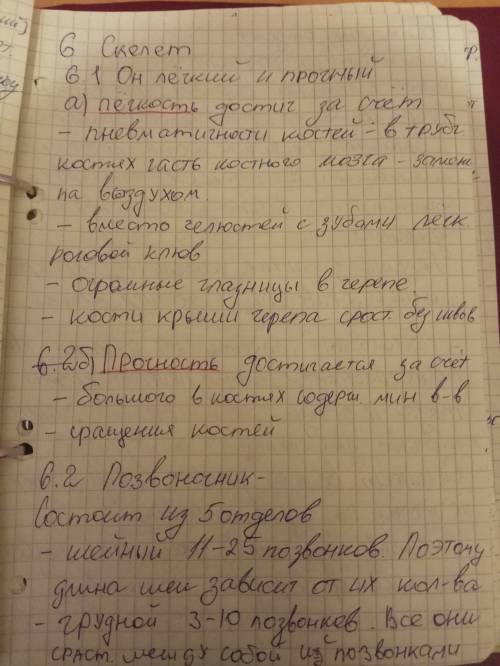 6 Скелет
6.1 Он лёгкий и прочный
а) лёгкость достиг за счёт
- пневматичности костей - в трубч.
костях часть костного мозга - замен
на воздухом.
- вместо челюстей с зубами лёгк.
роговой клюв
- огромные глазницы в черепе.
- кости крыши черепа сраст. без швов
6.2 б) Прочность достигается за счёт
- большого в костях содерж. мин в-в
- сращения костей
6.2 Позвоночник -
Состоит из 5 отделов
- шейный 11-25 позвонков. Поэтому
длина шеи зависит от их кол-ва
- грудной 3-10 позвонков. Все они
сраст. между собой и позвонками